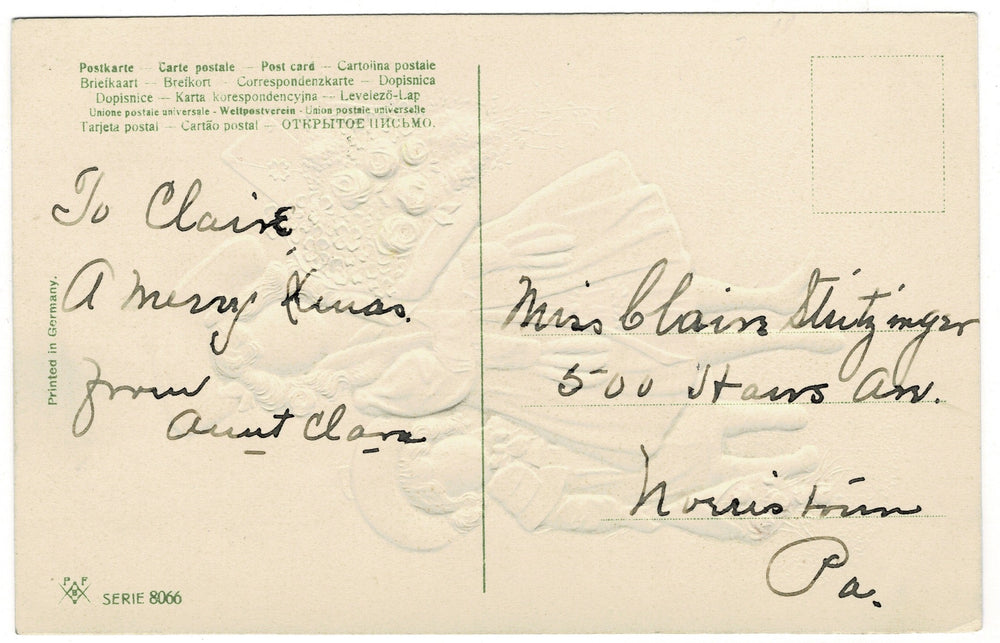 Postkarte — Carte postale — Post card — Cartolina postale
Briefkaart — Brefkort — Correspondenzkarte — Dopisnica
Dopisnice — Karta korespondencyjna — Levelező-Lap
Unione postale universale - Weltpostverein - Union postale universelle
Tarjeta postal — Cartão postal — ОТКРЫТОЕ ПИСЬМО.
To Claire
A Merry Xmas.
from
Aunt Clara
Printed in Germany.
PFB
SERIE 8066
Miss Claire Stritzinger
500 Haws Av.
Norristown
Pa.